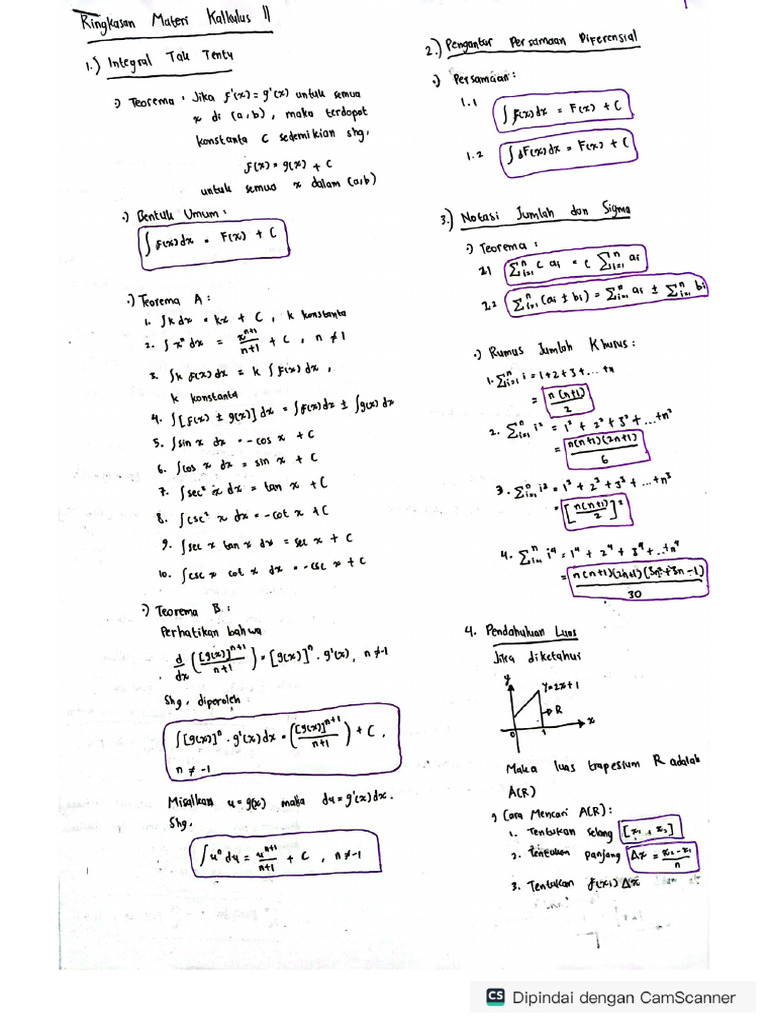 Ringkasan Materi Kalkulus II
1.) Integral Tak Tentu
•) Teorema : Jika f'(x) = g'(x) untuk semua
x di (a,b), maka terdapat
konstanta C sedemikian shg,
f(x) = g(x) + C
untuk semua x dalam (a,b)
•) Bentuk Umum :
∫ f(x) dx = F(x) + C
•) Teorema A :
1. ∫ k dx = kx + C , k konstanta
2. ∫ xⁿ dx = xⁿ⁺¹/(n+1) + C , n ≠ 1
3. ∫ k f(x) dx = k ∫ f(x) dx ,
k konstanta
4. ∫ [f(x) ± g(x)] dx = ∫ f(x) dx ± ∫ g(x) dx
5. ∫ sin x dx = - cos x + C
6. ∫ cos x dx = sin x + C
7. ∫ sec² x dx = tan x + C
8. ∫ csc² x dx = - cot x + C
9. ∫ sec x tan x dx = sec x + C
10. ∫ csc x cot x dx = - csc x + C
•) Teorema B :
Perhatikan bahwa
d/dx ([g(x)]ⁿ⁺¹/(n+1)) = [g(x)]ⁿ . g'(x), n ≠ -1
Shg, diperoleh
∫ [g(x)]ⁿ . g'(x) dx = ([g(x)]ⁿ⁺¹/(n+1)) + C ,
n ≠ -1
Misalkan u = g(x) maka du = g'(x) dx.
Shg,
∫ uⁿ du = uⁿ⁺¹/(n+1) + C , n ≠ -1
2.) Pengantar Persamaan Diferensial
•) Persamaan :
1.1 ∫ f(x) dx = F(x) + C
1.2 ∫ dF(x) dx = F(x) + C
3.) Notasi Jumlah dan Sigma
•) Teorema :
2.1 ∑ⁿᵢ₌₁ c aᵢ = c ∑ⁿᵢ₌₁ aᵢ
2.2 ∑ⁿᵢ₌₁ (aᵢ ± bᵢ) = ∑ⁿᵢ₌₁ aᵢ ± ∑ⁿᵢ₌₁ bᵢ
•) Rumus Jumlah Khusus :
1. ∑ⁿᵢ₌₁ i = 1 + 2 + 3 + ... + n
= n(n+1)/2
2. ∑ⁿᵢ₌₁ i² = 1² + 2² + 3² + ... + n²
= n(n+1)(2n+1)/6
3. ∑ⁿᵢ₌₁ i³ = 1³ + 2³ + 3³ + ... + n³
= [n(n+1)/2]²
4. ∑ⁿᵢ₌₁ i⁴ = 1⁴ + 2⁴ + 3⁴ + ... + n⁴
= n(n+1)(2n+1)(3n²+3n-1)/30
4. Pendahuluan Luas
Jika diketahui
y
y=2x+1
R
x
0 1
Maka luas trapesium R adalah
A(R)
•) Cara Mencari A(R) :
1. Tentukan selang [x₁ , x₂]
2. Tentukan panjang Δx = (x₂ - x₁)/n
3. Tentukan f(xᵢ) Δx
CS Dipindai dengan CamScanner